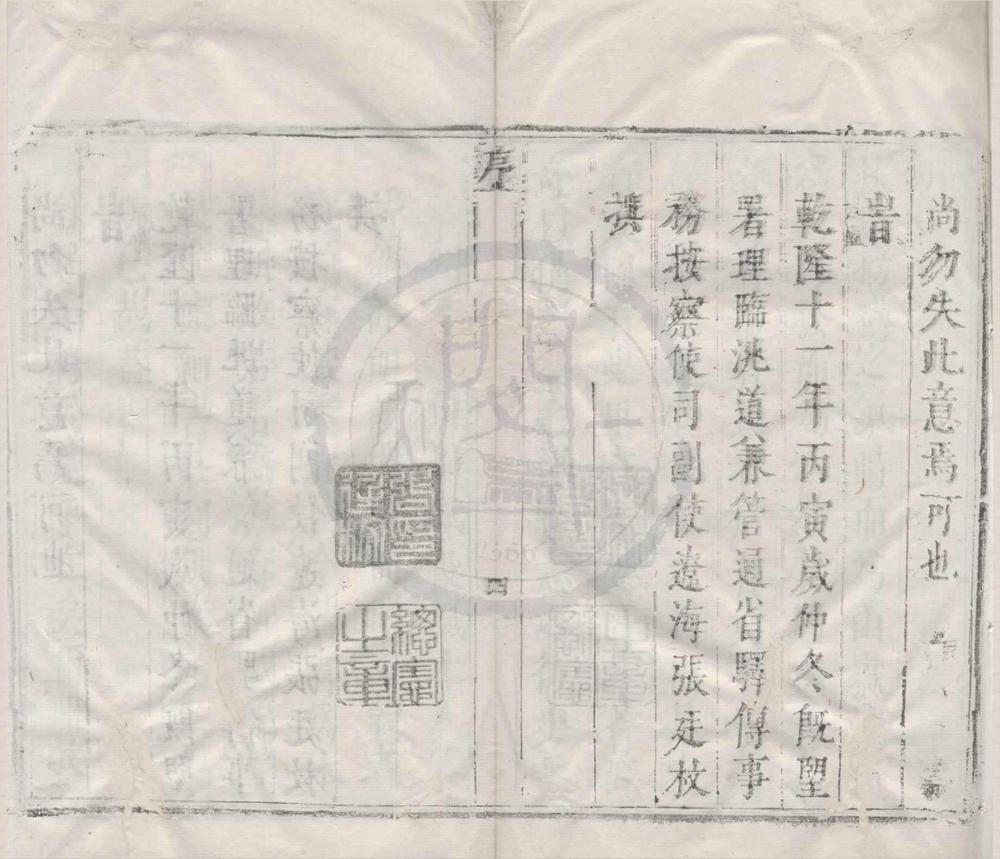 尚勿失此意焉可也
旹
乾隆十一年丙寅歲仲冬既望
署理臨洮道兼管通省驛傳事
務按察使司副使遼海張廷枚
譔
序
四